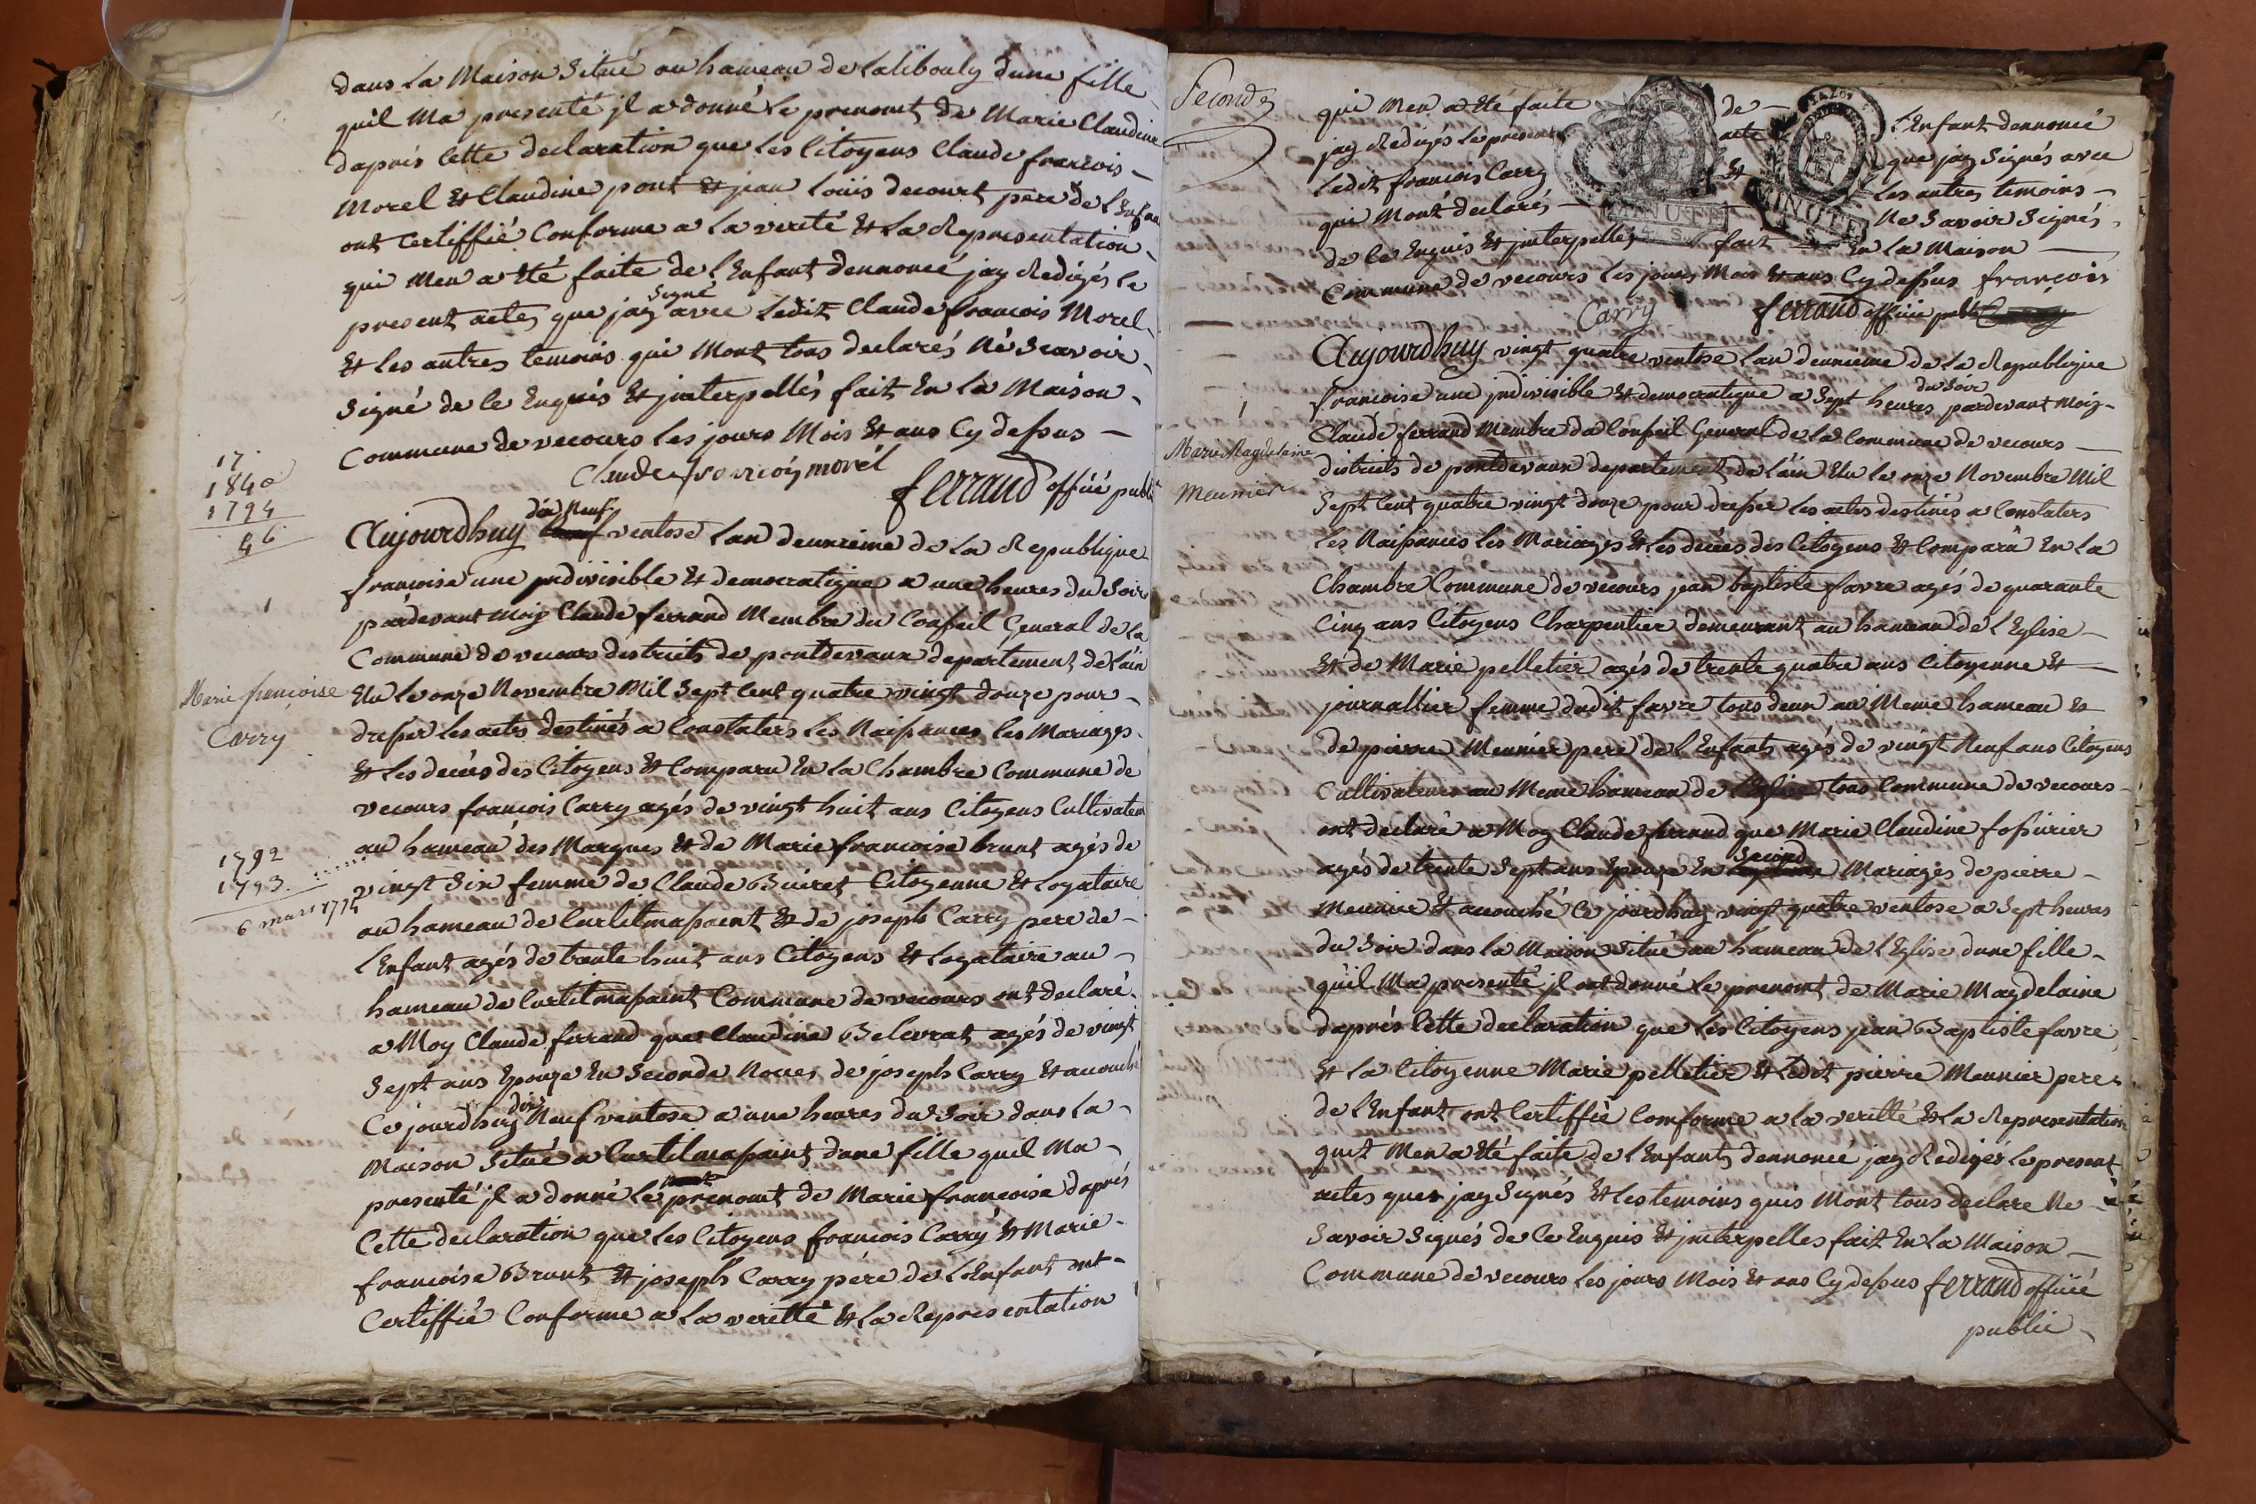 dans la Maison Situé au hameau de dune fille
quil Ma presenté jl a donné le prenomt de Marie Claudine
daprés Cette declaration que les Citoyens Claude francois
Morel Et Claudine pont Et jean Loüis decourt pere de lEnfan
ont Certiffié Conforme a la verité Et la Representation
qui Men a Eté faite de lEnfant dennoncé jay Redigés le
present actes que jay Signé avec ledit Claude francois Morel
Et les autres temoins qui Mont tous declarés Né Scavoir
Signé de ce Enquis Et jnterpellés fait En la Maison
Commune de vecours les jours Mois Et ans Cy dessus
Claude francois morél
ferrand offiié public
17
1840
1794
46
Aujourdhuy dix Neuf ventose lan deuxieme de la Republique
francoise une jndivisible Et democratique a une heures du Soir
1
pardevant moy Claude ferrand Membre du Conseil General de la
Commune de vecours destricts de pontdevaux departement de lain
Marie françoise
Carry
Elu le onze Novembre Mil Sept Cent quatre vingt douze pour
dresser les actes destinés a Constaters les Naissances les Mariages
Et les decées des Citoyens Et Comparu En la Chambre Commune de
vecours francois Carry agés de vingt huit ans Citoyens Cultivateu
au hameau des Marques Et de Marie francoise brunt agés de
1792
1793
6 mars 1794
vingt Six femme de Claude Buiret Citoyenne Et Logataire
au hameau de Curtilmassaint Et de joseph Carry pere de
lEnfant agés de trante huit ans Citoyens Et Logataire au
hameau de Curtilmasaint Commune de vecours ont declaré
a Moy Claude ferrand que Claudine Belevrat agés de vingt
Sept ans Epouze En Seconde Noces de joseph Carry Et acouché
Ce jourdhuy dix Neuf ventose a une heures du Soir dans la
Maison Situé a Curtilmasaint dune fille quil Ma
presenté jl a donné le prenomt de Marie francoise daprés
Cette declaration que les Citoyens francois Carry Et Marie
francoise Brunt Et joseph Carry pére de lEnfant ont
Certiffié Conforme a la veritté Et la Representation
Second
qui Men a Eté faite de lEnfant dennoncé
jay Redigés le present acte que jay Signés avec
ledit francois Carry Et les autres temoins
qui Mont declarés Ne Savoir Signés
MINUTE
MINUTE
de ce Enquis Et jnterpelles fait En la Maison
Commune de vecours les jours Mois Et ans Cy dessus françois
Carry
ferrand offiié public
Aujourdhuy vingt quatre ventose lan deuxieme de la Republique
francoise une jndivisible Et democratique a Sept heures du Soir pardevant Moy
1
Marie Magdelaine
Meunier
Claude ferrand Membre du Conseil General de la Commune de vecours
districts de pontdevaux departement de lain Elu le onze Novembre Mil
Sept Cent quatre vingt douze pour dresser les actes destinés a Constaters
les Naissances les Mariages Et les decées des Citoyens Et Comparu En la
Chambre Commune de vecours jean baptiste favre agés de quarante
Cinq ans Citoyens Charpentier demeurant au hameau de lEglise
Et de Marie pelletier agés de trente quatre ans Citoyenne Et
journallier femme dudit favre tous deux au Meme hameau Et
de pierre Meunier pere de lEnfants agés de vingt Neuf ans Citoyens
Cultivateurs au Meme hameau de lEglise tous Commune de vecours
ont declaré a Moy Claude ferrand que Marie Claudine fossurier
agés de trente Sept ans Epouze En Second Mariages de pierre
Meunier Et acouché Ce jourdhuy vingt quatre ventose a Sept heures
du Soir dans la Maison Situé au hameau de lEglise dune fille
quil Ma presenté jl ont donné le prenomt de Marie Magdelaine
daprés Cette declaration que les Citoyens jean Baptiste favre
Et la Citoyenne Marie pelletier Et ledit pierre Meunier pere
de lEnfant ont Certiffié Comforme a la veritté Et la Representation
quit Men a Eté faite de lEnfants dennoncé jay Redigés le present
actes que jay Signés Et les temoins quis Mont tous declare Ne
Savoir Signés de Ce Enquis Et jnterpelles fait En la Maison
Commune de vecours les jours Mois Et ans Cy dessus ferrand offiié
public